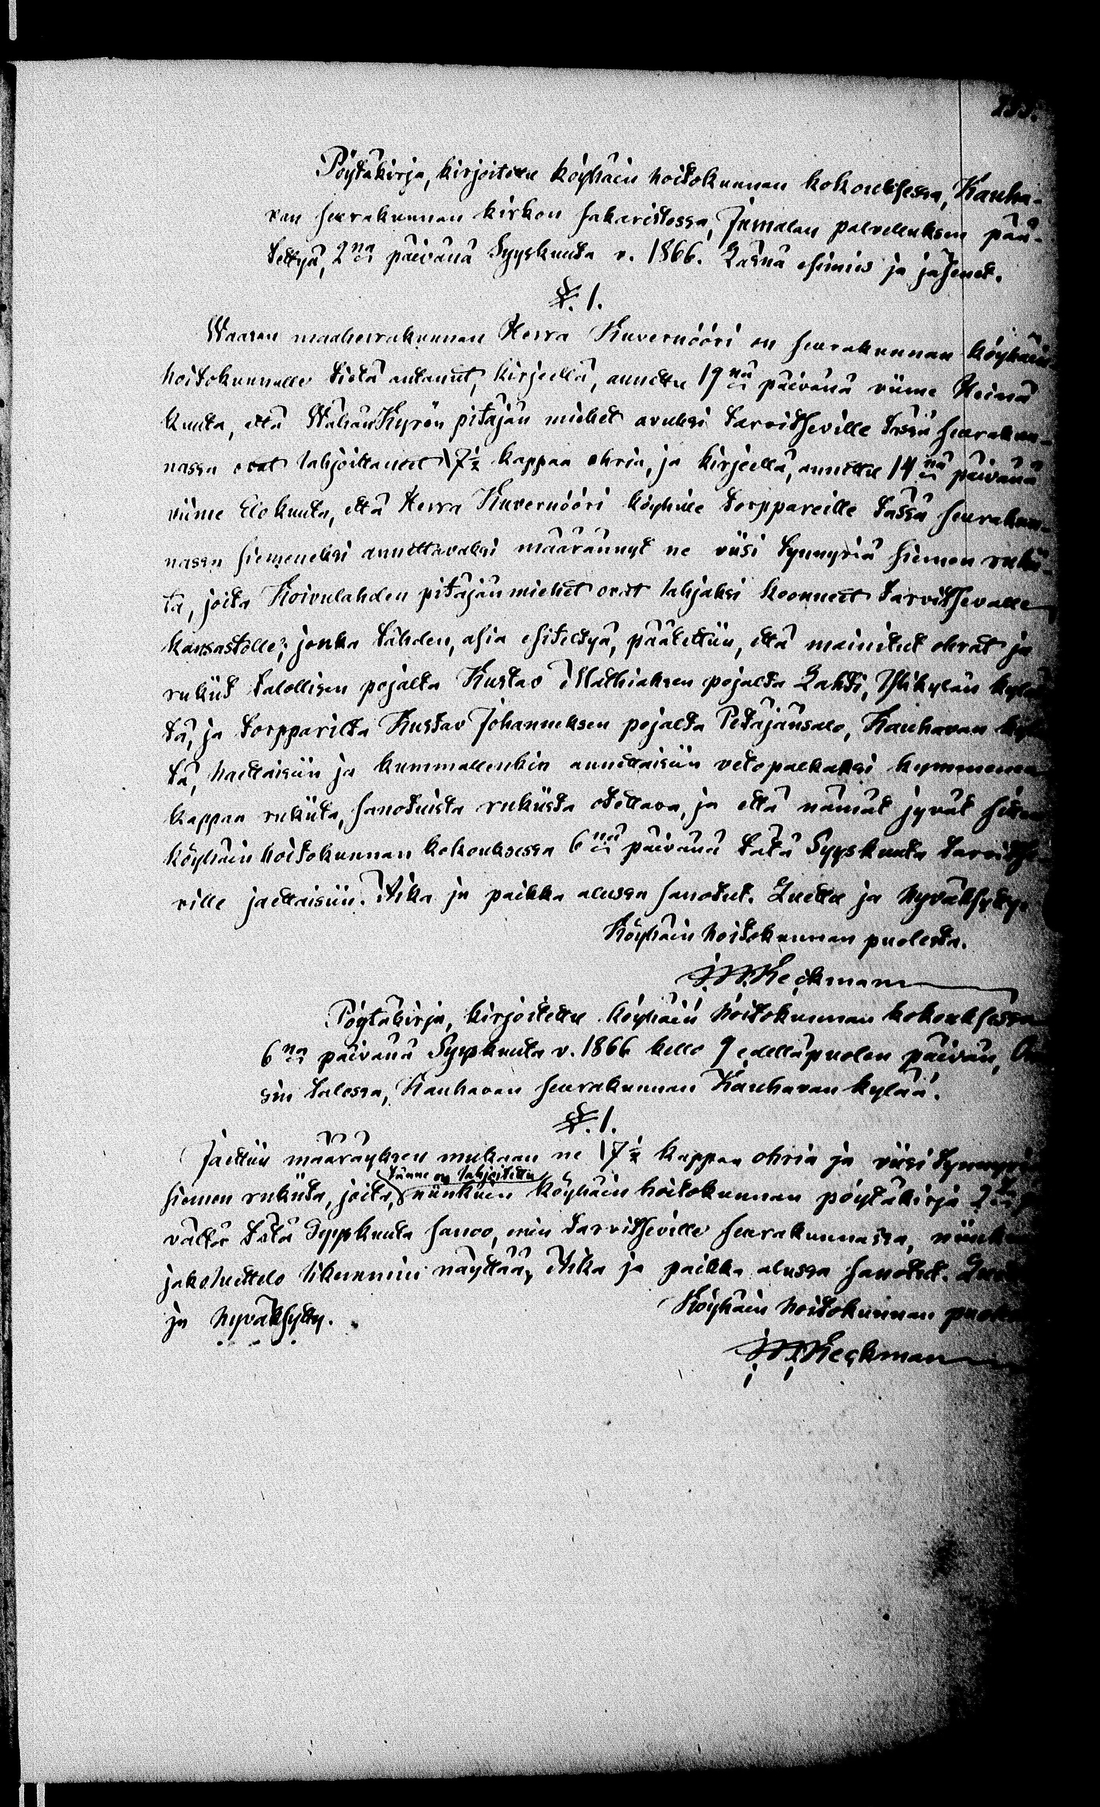 Pöytäkirja, kirjoitettu köyhäin hoitokunnan kokouksessa, Kauha-
van seurakunnan kirkon sakaristossa, Jumalan palveluksen pää-
tettyä, 2na päivänä Syyskuuta v. 1866. Läsnä esimies ja jäsenet.
§. 1.
Waasan maaherrakunnan Herra Kuvernööri on seurakunnan köyhäin
hoitokunnalle tietä antanut, kirjeellä, annettu 19nä päivänä viime Heinä
kuuta, että WähänKyrön pitäjän miehet avuksi tarvitseville tässä seurakun-
nassa ovat lahjoittaneet 17½ kappaa ohria, ja kirjeellä, annettu 14nä päivänä
viime Elokuuta, että Herra Kuvernööri köyhille torppareille tässä seurakun-
nassa siemeneksi annettavaksi määrännyt ne viisi tynnyriä siemen rukii-
ta, joita Koivulahden pitäjän miehet ovat lahjaksi koonneet tarvitsevalle
kansastolle; jonka tähden, asia esiteltyä, päätettiin, että mainitut ohrat ja
rukiit talollisen pojalta Kustav Mathiaksen pojalta Lahti, Ylikylän kyläs
tä, ja torpparilta Kustav Johanneksen pojalta Petäjänsalo, Kauhavan kyläs
tä, haettaisiin ja kummallenkin annettaisiin vetopalkaksi kymmenen
kappaa rukiita, sanotuista rukiista otettava, ja että nämät jyvät sitten
köyhäin hoitokunnan kokouksessa 6nä päivänä tätä Syyskuuta tarvitse
ville jaettaisiin. Aika ja paikka alussa sanotut. Luettu ja hyväksytty.
Köyhäin hoitokunnan puolesta.
J. M. Keckman
Pöytäkirja, kirjoitettu köyhäin hoitokunnan kokouksessa
6na päivänä Syyskuuta v. 1866 kello 9 edelläpuolen päivän,
sin talossa, Kauhavan seurakunnan Kauhavan kylää.
§. 1.
Jaettiin määräyksen mukaan ne 17½ kappaa ohria ja viisi tynnyriä
siemen rukiita, joita, tänne on lahjoitettu niinkuin köyhäin hoitokunnan pöytäkirja 2
vältä tätä Syyskuuta sanoo, niin tarvitseville seurakunnassa, niinkuin
jakoluettelo likemmin näyttää, Aika ja paikka alussa sanotut. Luettu
ja hyväksytty.
Köyhäin hoitokunnan puolesta
J. M. Keckman